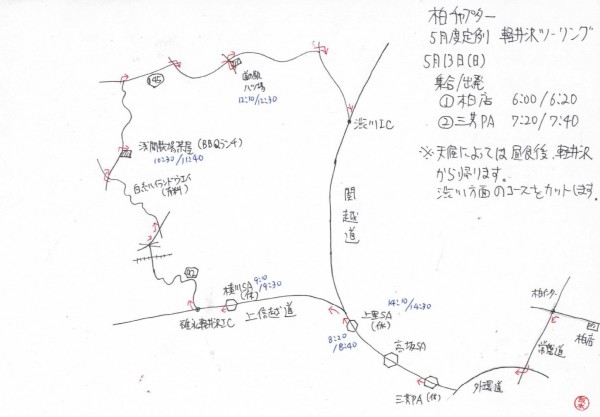 柏チャプター
5月度定例 軽井沢ツーリング
5月13日(日)
集合/出発
① 柏店 6:00/6:20
② 三芳PA 7:20/7:40
※天候によっては昼食後、軽井沢
から帰ります。
渋川方面のコースをカットします。
145
道の駅
八ッ場
12:10/12:30
渋川IC
浅間牧場茶屋(BBQランチ)
10:30/11:40
白糸ハイランドウェイ
(有料)
関越道
92
横川SA
(休)
9:10
/9:30
碓氷軽井沢IC
上信越道
14:10/14:30
上里SA
(休)
8:20
/8:40
高坂SA
三芳PA(休)
外環道
常磐道
柏インター
柏店